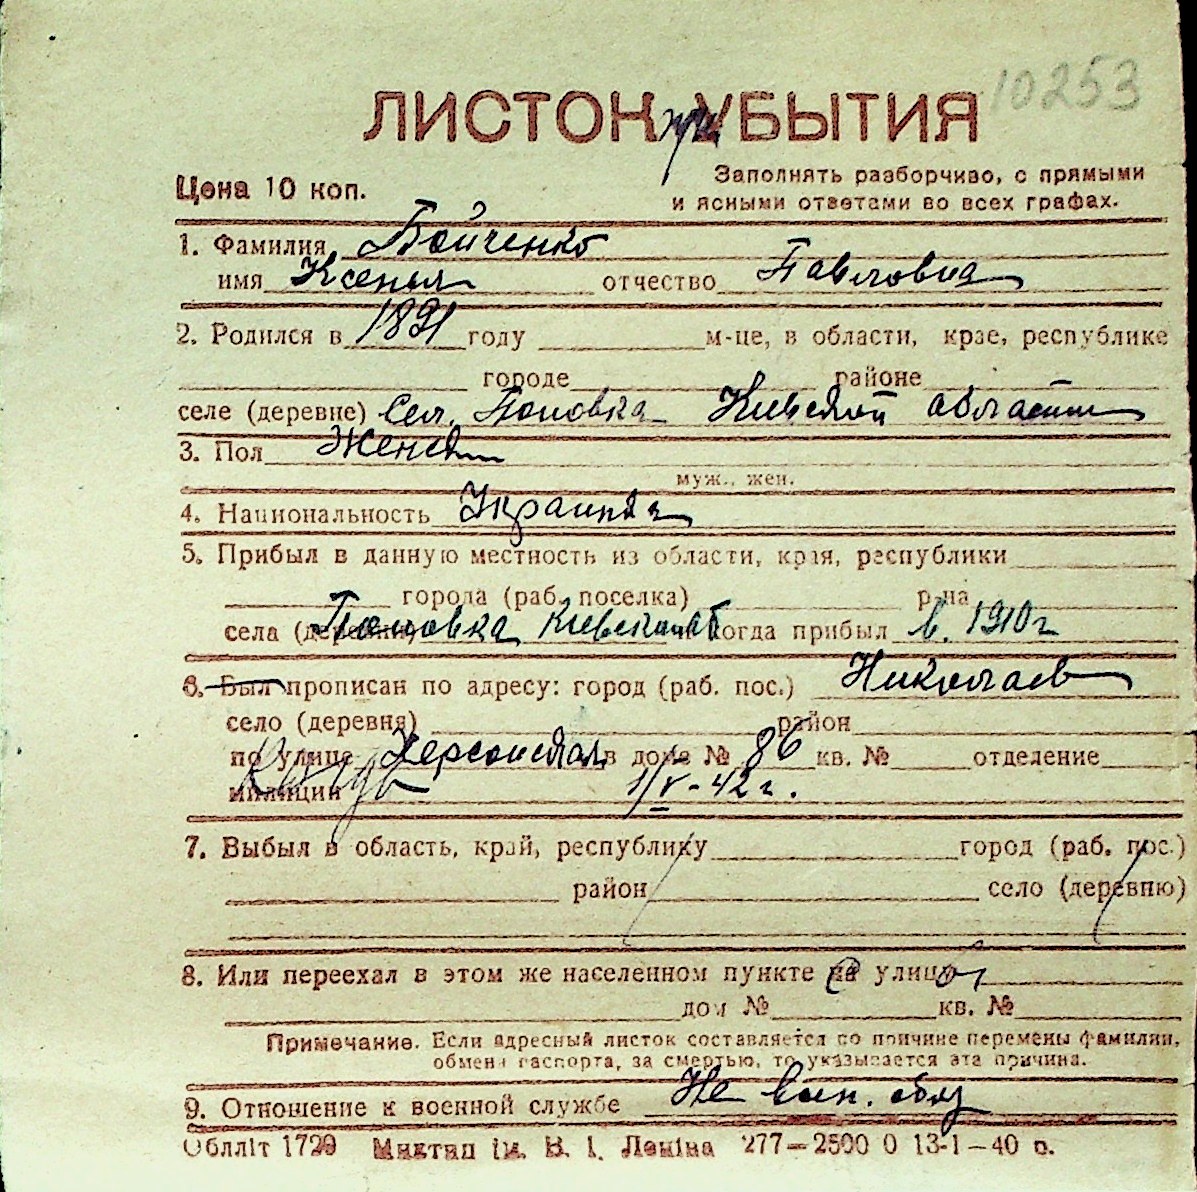 10253
ЛИСТОК при УБЫТИЯ
Цена 10 коп.
Заполнять разборчиво, с прямыми
и ясными ответами во всех графах.
1. Фамилия Бойченко
имя Ксенья отчество Павловна
2. Родился в 1891 году м-це, в области, крае, республике
городе районе
селе (деревне) Сел. Поповка Киевской области
3. Пол Женск
муж., жен.
4. Национальность Украинка
5. Прибыл в данную местность из области, края, республики
города (раб. поселка) р-на
села (деревни) Поповка Киевской об и когда прибыл в 1910 г
6. Был прописан по адресу: город (раб. пос.) Николаев
село (деревня) район
по улице Херсонская в доме № 86 кв. № отделение
милиции 1/V-42 г.
7. Выбыл в область, край, республику город (раб. пос.)
район село (деревню)
8. Или переехал в этом же населенном пункте на улицу
дом № кв. №
Примечание. Если адресный листок составляется по причине перемены фамилии,
обмена паспорта, за смертью, то указывается эта причина.
9. Отношение к военной службе Не воен. обяз
Обллiт 1729 Миктип iм. В. I. Ленiна 277—2500 0 13-1-40 р.